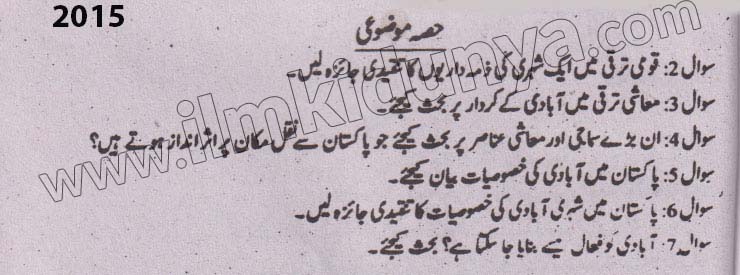 2015
حصہ موضوعی
سوال 2: قومی ترقی میں ایک شہری کی ذمہ داریوں کا تنقیدی جائزہ لیں۔
سوال 3: معاشی ترقی میں آبادی کے کردار پر بحث کیجئے۔
سوال 4: ان بڑے سماجی اور معاشی عناصر پر بحث کیجئے جو پاکستان سے نقل مکان پر اثر انداز ہوتے ہیں؟
سوال 5: پاکستان میں آبادی کی خصوصیات بیان کیجئے۔
سوال 6: پاکستان میں شہری آبادی کی خصوصیات کا تنقیدی جائزہ لیں۔
سوال 7: آبادی کو فعال کیسے بنایا جا سکتا ہے؟ بحث کیجئے۔
www.ilmkidunya.com